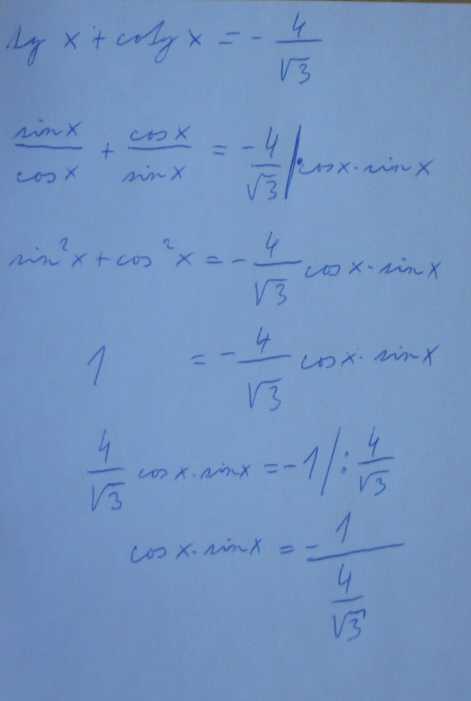 tg x + cotg x = - 4/√3
sin x/cos x + cos x/sin x = - 4/√3 /· cos x · sin x
sin²x + cos²x = - 4/√3 cos x · sin x
1 = - 4/√3 cos x · sin x
4/√3 cos x · sin x = - 1 /: 4/√3
cos x · sin x = - 1/(4/√3)